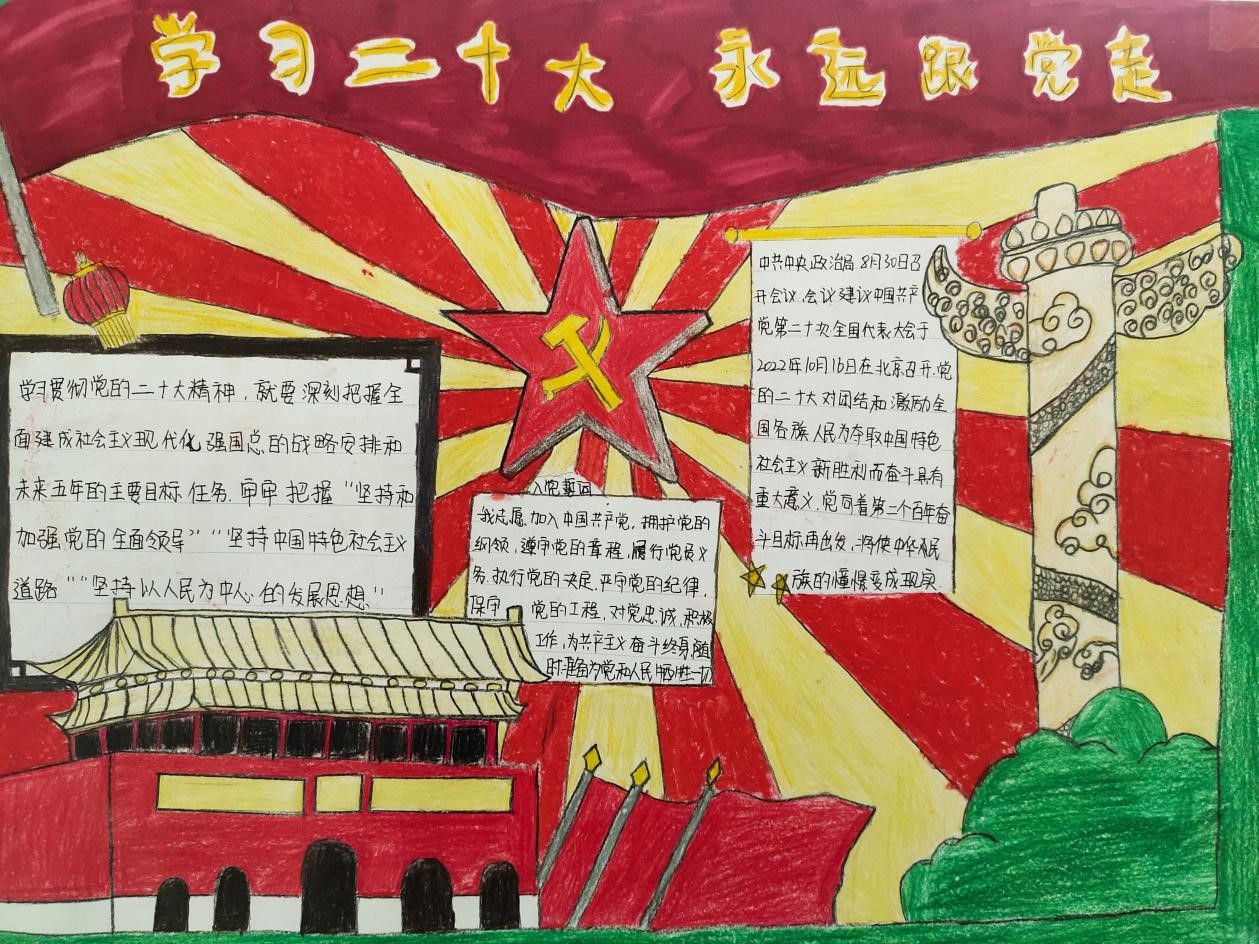 学习二十大 永远跟党走
学习贯彻党的二十大精神，就要深刻把握全
面建成社会主义现代化强国总的战略安排和
未来五年的主要目标任务.牢牢把握“坚持和
加强党的全面领导”“坚持中国特色社会主义
道路”“坚持以人民为中心的发展思想”
入党誓词
我志愿加入中国共产党，拥护党的
纲领，遵守党的章程，履行党员义
务.执行党的决定.严守党的纪律，
保守 党的工程，对党忠诚，积极
工作，为共产主义奋斗终身，随
时准备为党和人民牺牲一切
中共中央政治局8月30日召
开会议，会议建议中国共产
党第二十次全国代表大会于
2022年10月16日在北京召开.党
的二十大对团结和激励全
国各族人民为夺取中国特色
社会主义新胜利而奋斗具有
重大意义，党向着第二个百年奋
斗目标再出发，将使中华民
族的憧憬变成现实.